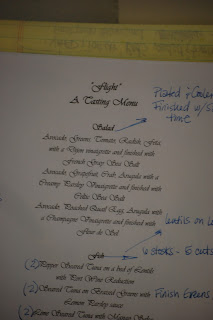 "Flight"
A Tasting Menu
Salad
Avocado, Greens, Tomato, Radish, Feta,
with a Dijon vinaigrette and finished with
French Gray Sea Salt
Avocado, Grapefruit, Crab, Arugula with a
Creamy Parsley Vinaigrette and finished with
Celtic Sea Salt
Avocado, Poached Quail Egg, Arugula with
a Champagne Vinaigrette and finished with
Fleur de Sel
Fish
(2) Pepper Seared Tuna on a bed of Lentils
with Port Wine Reduction
(2) Seared Tuna on Braised Greens with
Lemon Parsley sauce
(2) Seared Tuna with Mango Salsa
Plated &
Finished w/
time
lentils on
6 stocks - 5 cuts
Finish Greens